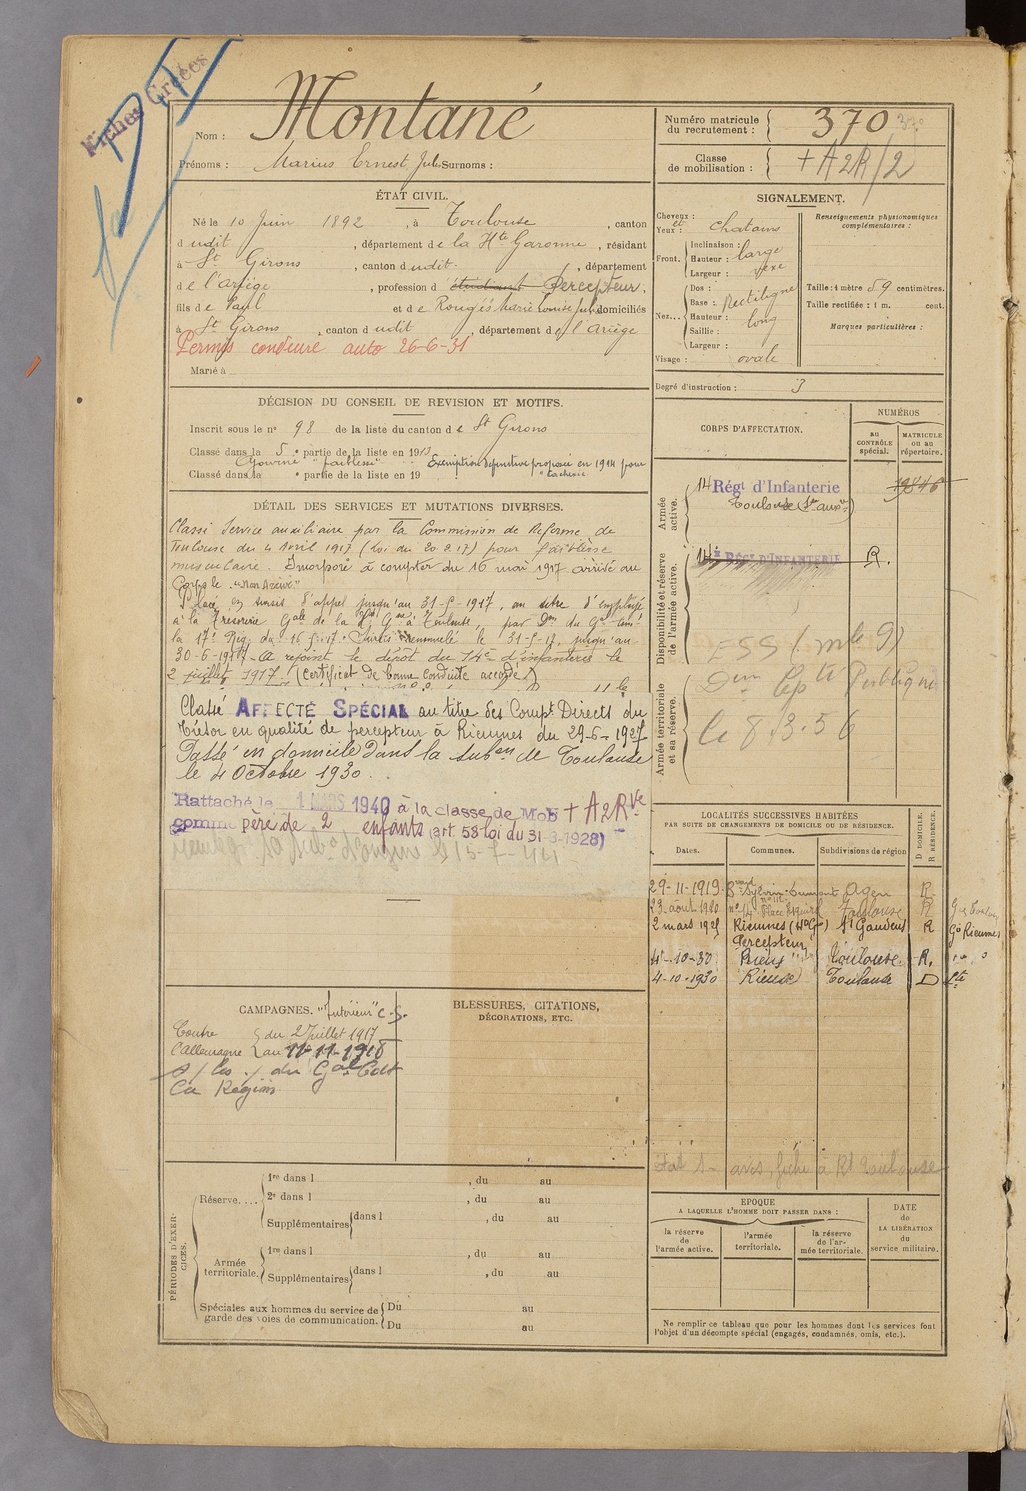 Fiches Créées
Nom : Montané
Prénoms : Marius Ernest Jules Surnoms :
Numéro matricule du recrutement : 370
Classe de mobilisation : + A2R/2
ÉTAT CIVIL.
Né le 10 Juin 1892, à Toulouse, canton
dudit, département de la Hte Garonne, résidant
à St Girons, canton dudit, département
de l'Ariège, profession d étudiant Percepteur,
fils de Paul et de Rougés Marie Louise Julie domiciliés
à St Girons, canton dudit, département de l'Ariège
Permis conduire auto 26-6-31
Marié à
SIGNALEMENT.
Cheveux : et
Yeux : chatains
Front. Inclinaison : large
Hauteur :
Largeur : vexe
Nez... Dos : Rectiligne
Base :
Hauteur : long
Saillie :
Largeur :
Visage : ovale
Renseignements physionomiques complémentaires :
Taille : 1 mètre 59 centimètres.
Taille rectifiée : 1 m. cent.
Marques particulières :
Degré d'instruction : 3
DÉCISION DU CONSEIL DE REVISION ET MOTIFS.
Inscrit sous le n° 98 de la liste du canton de St Girons
Classé dans la 5e partie de la liste en 1913
Ajourné "faiblesse" Exemption définitive proposée en 1914 pour
Classé dans la e partie de la liste en 19
DÉTAIL DES SERVICES ET MUTATIONS DIVERSES.
Classé Service auxiliaire par la Commission de Réforme de
Toulouse du 4 avril 1917 (Loi du 20.2.17) pour faiblesse
musculaire. Incorporé à compter du 16 mai 1917 arrivé au
Corps le "Non Arrivé"
Placé en sursis d'appel jusqu'au 31-5-1917, au titre d'employé
à la Trésorerie Gale de la Hte Gne à Toulouse, par Don du Gal Comt
la 17e Rég. du 16-5-17. Sursis renouvelé le 31-5-17, jusqu'au
30-6-1917. A rejoint le dépôt du 14e d'infanterie le
2 juillet 1917. (certificat de bonne conduite accordé)
Classé AFFECTÉ SPÉCIAL au titre des Compt. Directs du
Trésor en qualité de percepteur à Rieumes du 29-6-1927
Passé en domicile dans la subon de Toulouse
le 4 Octobre 1930.
Rattaché le 1 MARS 1940 à la classe de Mob + A2RVe
comme père de 2 enfants (art 58 loi du 31-3-1928)
CORPS D'AFFECTATION.
NUMÉROS
AU CONTRÔLE SPÉCIAL.
MATRICULE OU AU RÉPERTOIRE.
Armée active.
14 Régt d'Infanterie 19846
Toulouse (Son auxre)
Disponibilité et réserve de l'armée active.
14e RÉGT D'INFANTERIE R.
ESS (mle 9)
Armée territoriale et sa réserve.
le 8.3.56
LOCALITÉS SUCCESSIVES HABITÉES
PAR SUITE DE CHANGEMENTS DE DOMICILE OU DE RÉSIDENCE.
D DOMICILE. R RÉSIDENCE.
Dates. Communes. Subdivisions de région
29-11-1919 Bard Sylvin Dumont Agen R
23 août 1920 Toulouse R
2 mars 1925 Rieumes (Hte Gne) St Gaudens R Gd Rieumes
Percepteur
4-10-30 Rieux Toulouse R.
4-10-1930 Rieux Toulouse D
CAMPAGNES. "Intérieur" C.S.
Contre du 2 Juillet 1917
l'allemagne au 11-11-1918
du Gal Cdt
La Région
BLESSURES, CITATIONS,
DÉCORATIONS, ETC.
PÉRIODES D'EXERCICES.
Réserve.... 1re dans l , du au
2e dans l , du au
Supplémentaires dans l , du au
Armée territoriale. 1re dans l , du au
Supplémentaires dans l , du au
Spéciales aux hommes du service de garde des voies de communication. Du au
Du au
EPOQUE
A LAQUELLE L'HOMME DOIT PASSER DANS :
la réserve de l'armée active.
l'armée territoriale.
la réserve de l'armée territoriale.
DATE de LA LIBÉRATION du service militaire.
Ne remplir ce tableau que pour les hommes dont les services font
l'objet d'un décompte spécial (engagés, condamnés, omis, etc.).